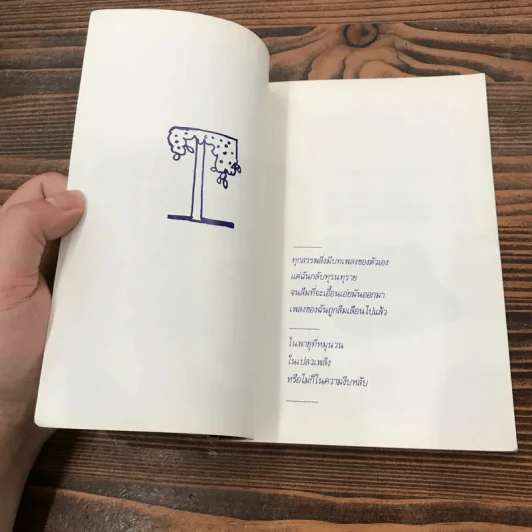 ทุกสรรพสิ่งมีบทเพลงของตัวเอง
แต่ฉันกลับทุรนทุราย
จนลืมที่จะเอื้อนเอ่ยมันออกมา
เพลงของฉันถูกลืมเลือนไปแล้ว
ในพายุที่หมุนวน
ในเปลวเพลิง
หรือไม่ก็ในความเงียบหลับ